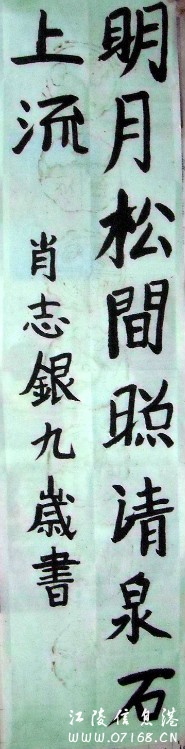 明月松間照清泉石
上流
肖志銀九歲書
江陵信息港
WWW.07168.CN